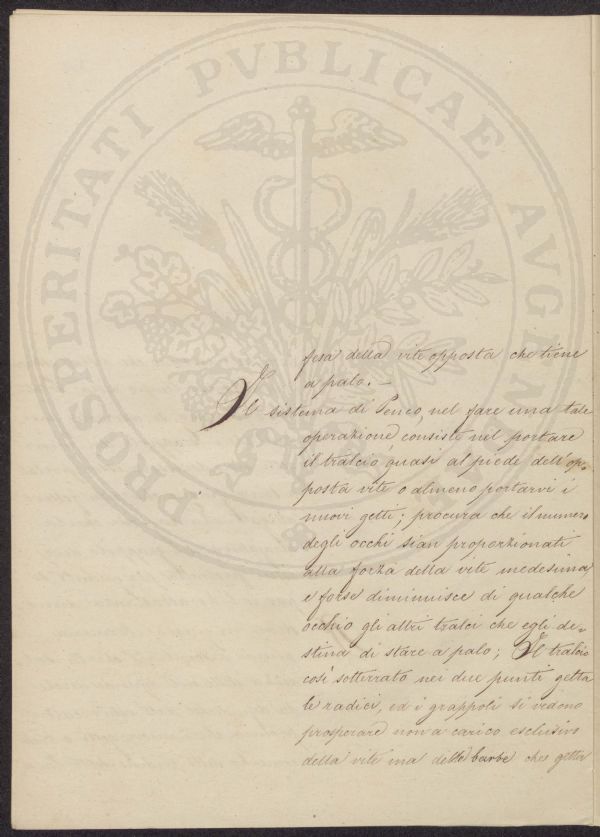 PROSPERITATI PVBLICAE AVGENDAE
fesa della vite opposta che tiene
a palo. —
Il sistema di Penco, nel fare una tale
operazione consiste nel portare
il tralcio quasi al piede dell'op-
posta vite o almeno portarvi i
nuovi getti; procura che il numero
degli occhi sian proporzionati
alla forza della vite medesima,
e forse diminuisce di qualche
occhio gli altri tralci che egli de=
stina di stare a palo; Il tralcio
così sotterrato nei due punti getta
le radici, ed i grappoli si vedono
prosperare non a carico esclusivo
della vite ma delle barbe che getta